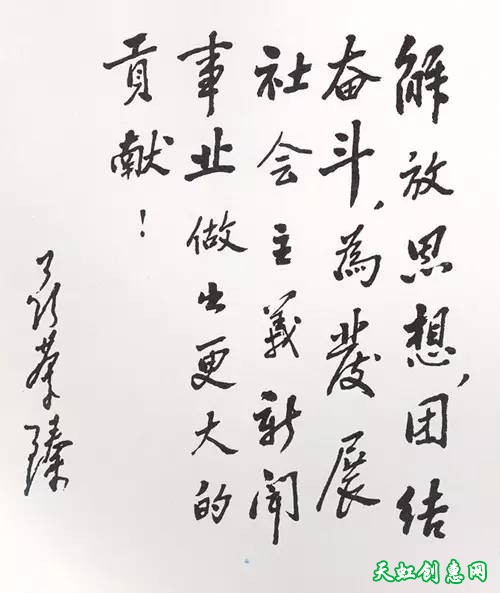 解放思想，团结
奋斗，為發展
社会主義新闻
事业做出更大的
貢献！
天虹创惠网